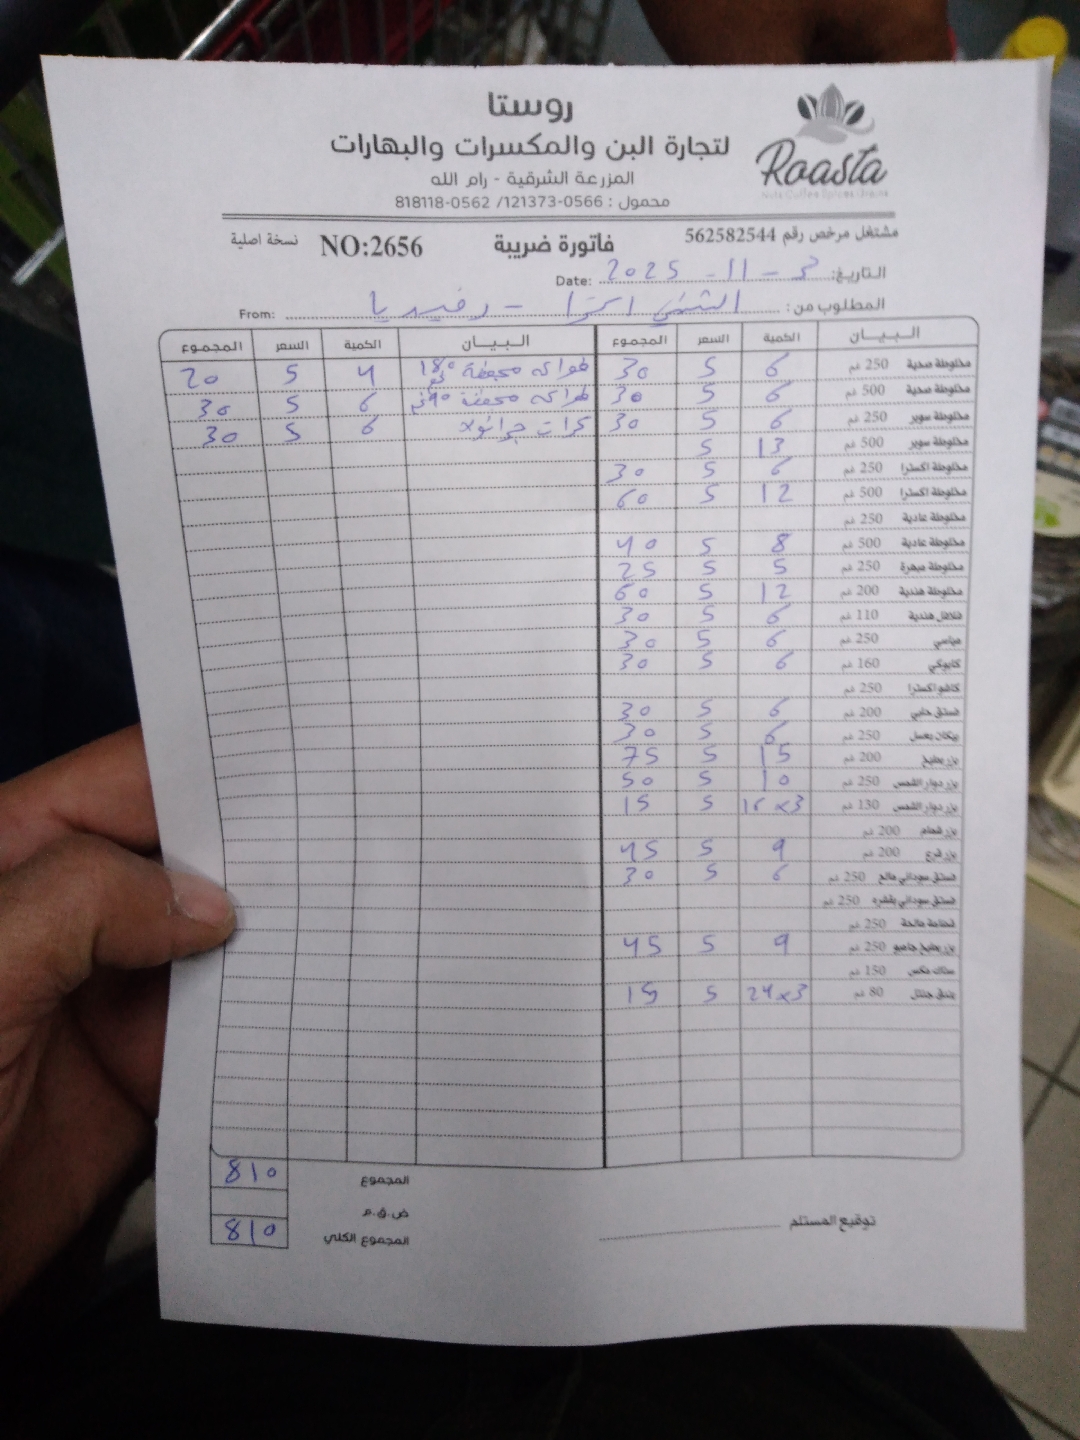 روستا
لتجارة البن والمكسرات والبهارات
المزرعة الشرقية - رام الله
محمول : 0566-121373/ 0562-818118
Roasta
مشتغل مرخص رقم 562582544
فاتورة ضريبة
NO:2656
نسخة اصلية
التاريخ: 3 - 11 - 2025 Date:
المطلوب من: - رفيديا From:
البيـان الكمية السعر المجموع البيـان الكمية السعر المجموع
مخلوطة صحية 250 غم 6 5 30 فواكه مجففة 180 غم 4 5 20
مخلوطة صحية 500 غم 6 5 30 فواكه مجففة 6 5 30
مخلوطة سوبر 250 غم 6 5 30 كرات جرانولا 6 5 30
مخلوطة سوبر 500 غم 13 5
مخلوطة اكسترا 250 غم 6 5 30
مخلوطة اكسترا 500 غم 12 5 60
مخلوطة عادية 250 غم
مخلوطة عادية 500 غم 8 5 40
مخلوطة مبهرة 250 غم 5 5 25
مخلوطة هندية 200 غم 12 5 60
فلافل هندية 110 غم 6 5 30
250 غم 6 5 30
كابوكي 160 غم 6 5 30
كاشو اكسترا 250 غم
فستق حلبي 200 غم 6 5 30
بيكان بعسل 250 غم 6 5 30
بزر بطيخ 200 غم 15 5 75
بزر دوار الشمس 250 غم 10 5 50
بزر دوار الشمس 130 غم 3× 5 15
بزر شمام 200 غم
بزر قرع 200 غم 9 5 45
فستق سوداني مالح 250 غم 6 5 30
فستق سوداني بقشره 250 غم
قضامة مالحة 250 غم
بزر بطيخ جامبو 250 غم 9 5 45
ستاك مكس 150 غم
80 غم 24×3 5 15
المجموع 810
ض.ق.م
المجموع الكلي 810
توقيع المستلم